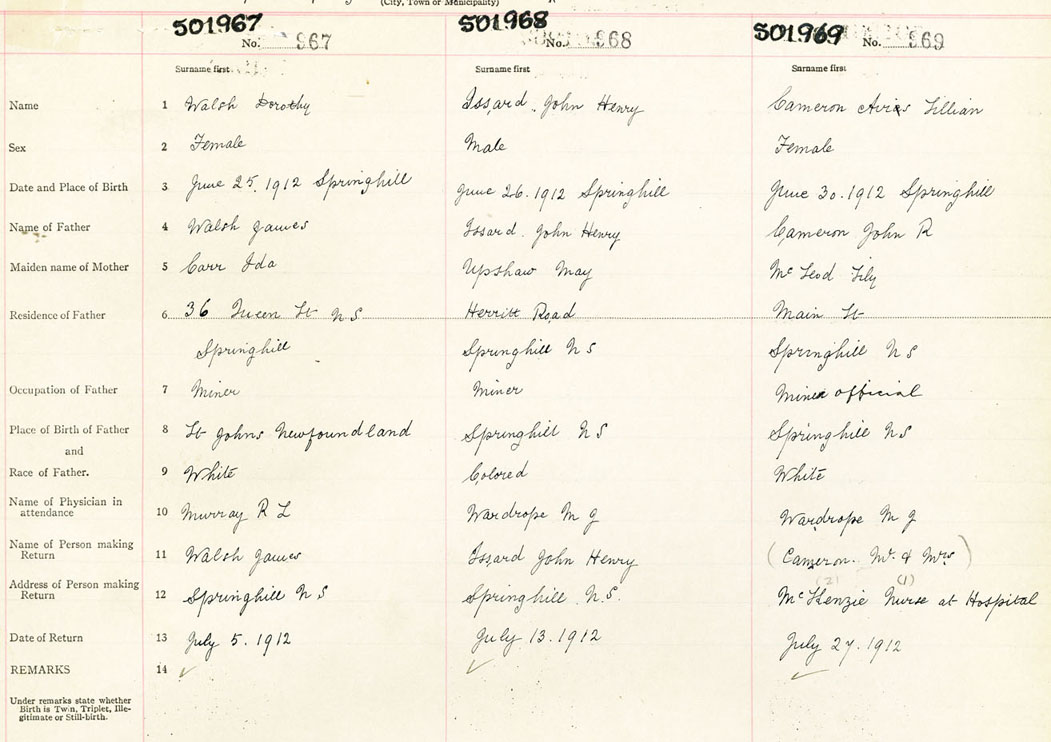 (City, Town or Municipality)
501967 501968 501969
No. 967 No. 968 No. 969
Surname first Surname first Surname first
Name 1 Walsh Dorothy Issard. John Henry Cameron Avis Lillian
Sex 2 Female Male Female
Date and Place of Birth 3 June 25. 1912 Springhill June 26. 1912 Springhill June 30. 1912 Springhill
Name of Father 4 Walsh James Issard. John Henry Cameron John R
Maiden name of Mother 5 Carr Ida Upshaw May McLeod Lily
Residence of Father 6 36 Queen St N S Herritt Road Main St
Springhill Springhill N S Springhill N S
Occupation of Father 7 Miner Miner Mine official
Place of Birth of Father 8 St Johns Newfoundland Springhill N S Springhill N S
and
Race of Father. 9 White Colored White
Name of Physician in
attendance 10 Murray R L Wardrope M J Wardrope M J
Name of Person making
Return 11 Walsh James Issard John Henry (Cameron. Mr. & Mrs)
(2) (1)
Address of Person making
Return 12 Springhill N S Springhill N.S. McKenzie Nurse at Hospital
Date of Return 13 July 5. 1912 July 13. 1912 July 27. 1912
REMARKS 14
Under remarks state whether
Birth is Twin, Triplet, Ille-
gitimate or Still-birth.